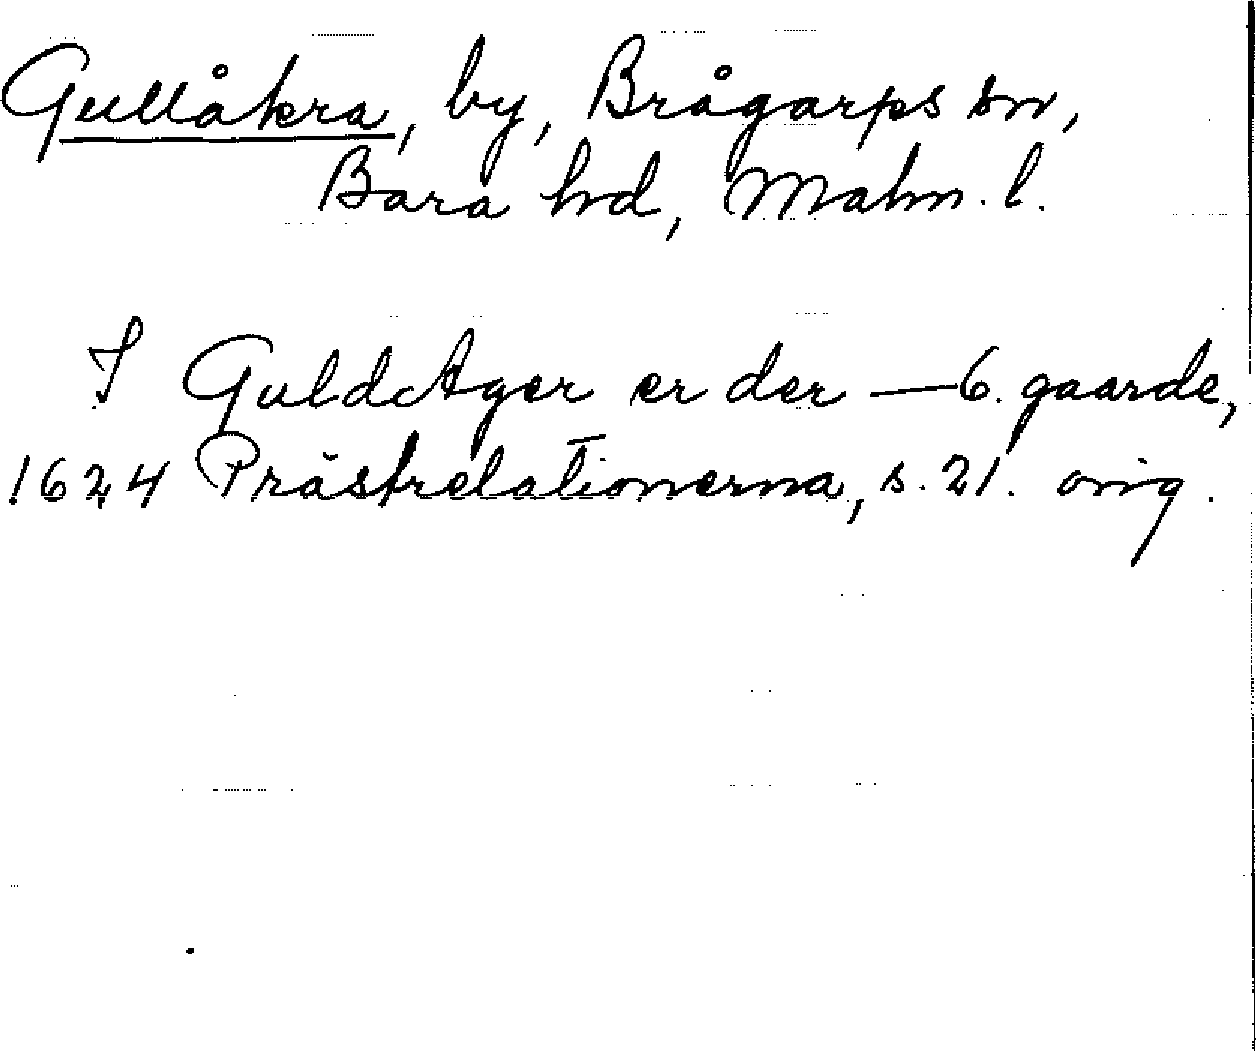 Gullåkra, by, Brågarps sn,
Bara hd, Malm. l.
I GuldAger er der — 6. gaarde,
1624 Prästrelationerna, s. 21. orig.